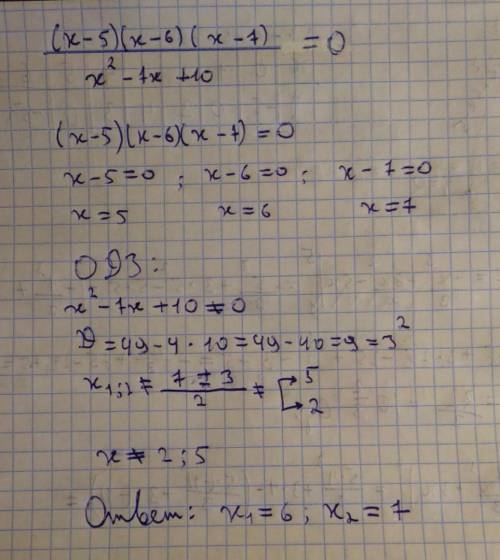 (x-5)(x-6)(x-7) / x²-7x+10 = 0
(x-5)(x-6)(x-7)=0
x-5=0 ; x-6=0 ; x-7=0
x=5 x=6 x=7
ОДЗ:
x²-7x+10≠0
D=49-4·10=49-40=9=3²
x₁;₂ ≠ 7±3 / 2 ≠ 5
2
x≠2;5
Ответ: x₁=6; x₂=7